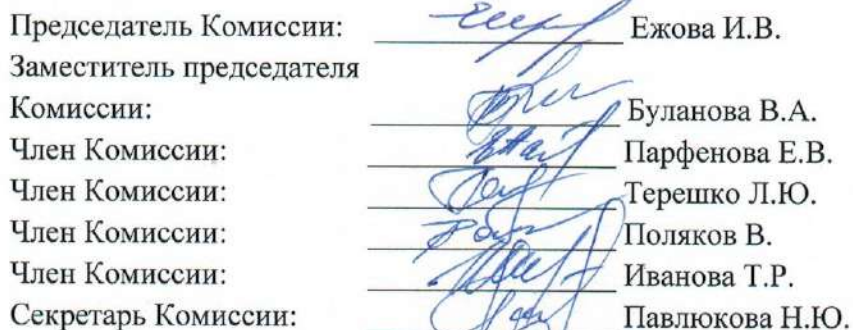 Председатель Комиссии: Ежова И.В.
Заместитель председателя
Комиссии: Буланова В.А.
Член Комиссии: Парфенова Е.В.
Член Комиссии: Терешко Л.Ю.
Член Комиссии: Поляков В.
Член Комиссии: Иванова Т.Р.
Секретарь Комиссии: Павлюкова Н.Ю.